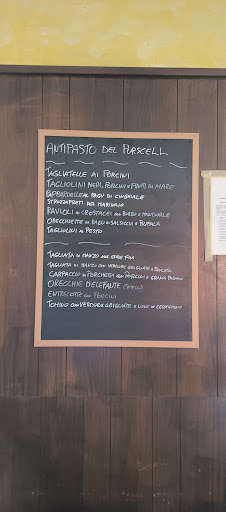 ANTIPASTO DEL PORSCELL
TAGLIATELLE AI PORCINI
TAGLIOLINI NERI, PORCINI E FRUTTI DI MARE
PAPPARDELLE AL RAGÙ DI CINGHIALE
STROZZAPRETI DEL MARINAIO
RAVIOLI DI CROSTACEI CON BURRO E
ORECCHIETTE AL RAGÙ DI SALSICCIA E BUFALA
TAGLIOLINI AL PESTO
TAGLIATA DI MANZO CON ERBE FINI
TAGLIATA DI MANZO CON VERDURE GRIGLIATE E PORCINI
CARPACCIO DI PORCHETTA CON PORCINI E GRANA PADANO
ORECCHIE D'ELEFANTE
ENTRECOTTE CON PORCINI
TOMINO CON VERDURE GRIGLIATE E